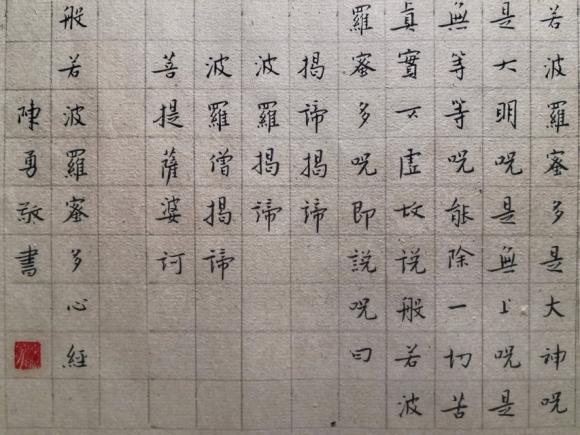 若波羅蜜多是大神咒
是大明咒是無上咒是
無等等咒能除一切苦
真實不虛故說般若波
羅蜜多咒即說咒曰
揭諦揭諦
波羅揭諦
波羅僧揭諦
菩提薩婆訶
般若波羅蜜多心經
陳勇敬書